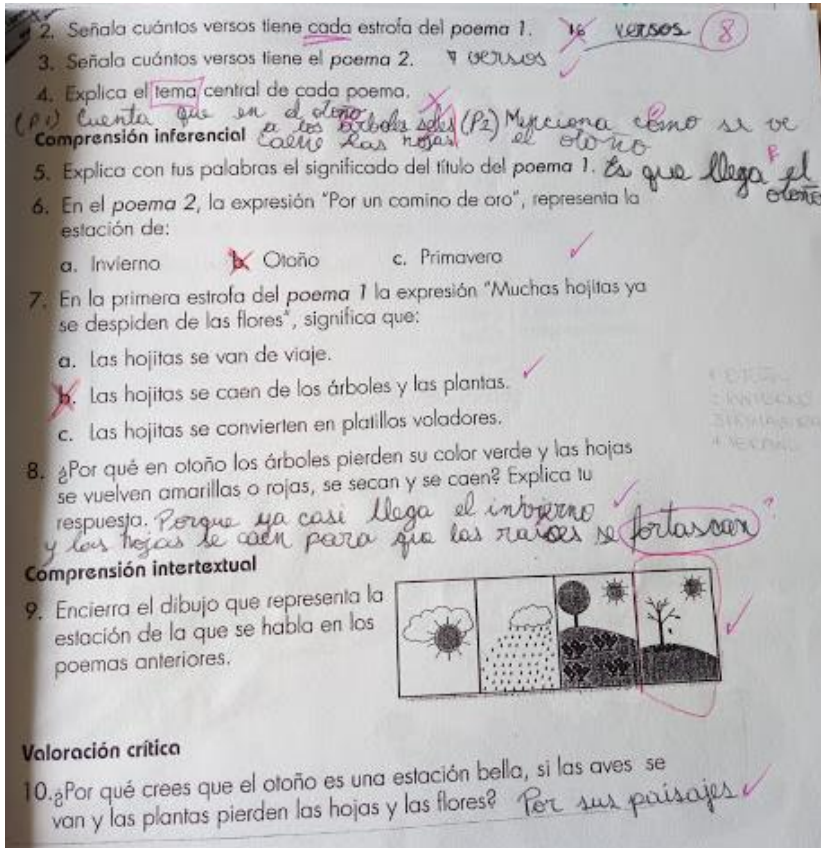 2. Señala cuántos versos tiene cada estrofa del poema 1. 16 versos 8
3. Señala cuántos versos tiene el poema 2. versos
4. Explica el tema central de cada poema.
(P1) Cuenta que en el otoño (P2) Menciona cómo se ve
a los árboles se les el otoño
caene las hojas
Comprensión inferencial
5. Explica con tus palabras el significado del título del poema 1. Es que llega el
otoño
6. En el poema 2, la expresión "Por un camino de oro", representa la
estación de:
a. Invierno b. Otoño c. Primavera
7. En la primera estrofa del poema 1 la expresión "Muchas hojitas ya
se despiden de las flores", significa que:
a. Las hojitas se van de viaje.
b. Las hojitas se caen de los árboles y las plantas.
c. Las hojitas se convierten en platillos voladores.
8. ¿Por qué en otoño los árboles pierden su color verde y las hojas
se vuelven amarillas o rojas, se secan y se caen? Explica tu
respuesta. Porque ya casi llega el invierno
y las hojas se caen para que las raíces se fortascan ?
Comprensión intertextual
9. Encierra el dibujo que representa la
estación de la que se habla en los
poemas anteriores.
Valoración crítica
10. ¿Por qué crees que el otoño es una estación bella, si las aves se
van y las plantas pierden las hojas y las flores? Por sus paisajes